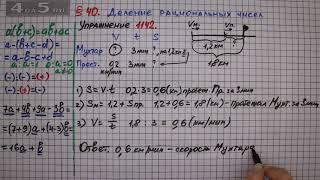 4 an 5 ru
§ 40. Деление рациональных чисел
Упражнение 1142.
a(b+c)=ab+ac
a-(b+c-d)=
=a-b-c+d
(-)·(-)=(+)
(+)·(-)=(-)
7a+4b+9a-3b=
=(7+9)a+(4-3)b=
=16a+b
V t S
Мухтар ? 3 мин ?, на 1,2 км
Прест. 0,2 км/мин 3 мин ?
Vм. Vп.
1,2 км
1,8 км
1) S=V·t 0,2·3=0,6 (км) - пробежал Пр. за 3 мин
2) Sм.=1,2+Sпр. 1,2+0,6=1,8 (км) - Пробежал Мухт. за 3 мин
3) V=S/t 1,8:3=0,6 (км/мин)
Ответ: 0,6 км/мин - скорость Мухтара